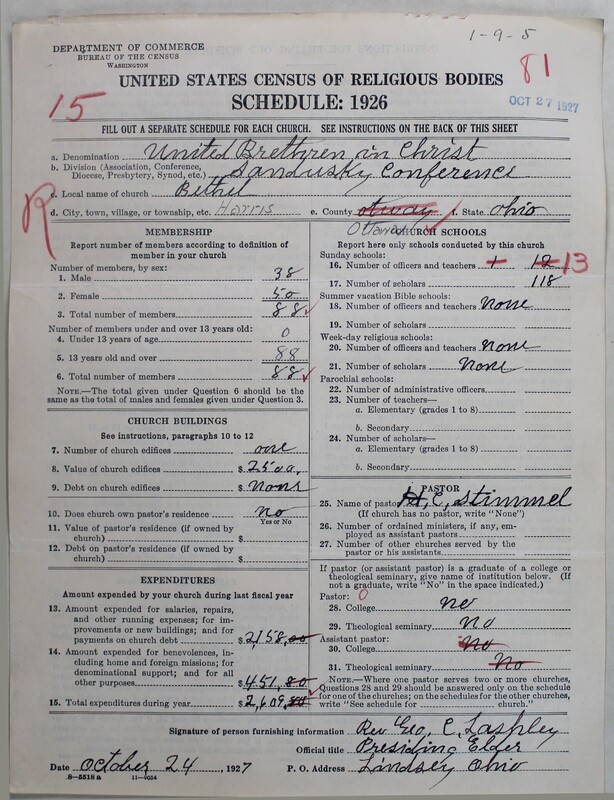 1-9-5
DEPARTMENT OF COMMERCE
BUREAU OF THE CENSUS
WASHINGTON
81
UNITED STATES CENSUS OF RELIGIOUS BODIES
15
SCHEDULE: 1926
OCT 27 1927
FILL OUT A SEPARATE SCHEDULE FOR EACH CHURCH. SEE INSTRUCTIONS ON THE BACK OF THIS SHEET
a. Denomination United Brethren in Christ
b. Division (Association, Conference, Diocese, Presbytery, Synod, etc.) Sandusky Conference
c. Local name of church Bethel
R
d. City, town, village, or township, etc. Harris e. County Otway f. State Ohio
Ottawa
MEMBERSHIP
Report number of members according to definition of member in your church
Number of members, by sex:
1. Male 38
2. Female 50
3. Total number of members 88
Number of members under and over 13 years old:
4. Under 13 years of age 0
5. 13 years old and over 88
6. Total number of members 88
NOTE.—The total given under Question 6 should be the same as the total of males and females given under Question 3.
CHURCH BUILDINGS
See instructions, paragraphs 10 to 12
7. Number of church edifices one
8. Value of church edifices $ 2500.
9. Debt on church edifices $ none
10. Does church own pastor's residence? no
Yes or No
11. Value of pastor's residence (if owned by church) $
12. Debt on pastor's residence (if owned by church) $
EXPENDITURES
Amount expended by your church during last fiscal year
13. Amount expended for salaries, repairs, and other running expenses; for improvements or new buildings; and for payments on church debt $ 2158.00
14. Amount expended for benevolences, including home and foreign missions; for denominational support; and for all other purposes $ 451.80
15. Total expenditures during year $ 2,609.80
CHURCH SCHOOLS
Report here only schools conducted by this church
Sunday schools:
16. Number of officers and teachers 1 12 13
17. Number of scholars 118
Summer vacation Bible schools:
18. Number of officers and teachers none
19. Number of scholars
Week-day religious schools:
20. Number of officers and teachers none
21. Number of scholars none
Parochial schools:
22. Number of administrative officers
23. Number of teachers—
a. Elementary (grades 1 to 8)
b. Secondary
24. Number of scholars—
a. Elementary (grades 1 to 8)
b. Secondary
PASTOR
25. Name of pastor H. C. Stimmel
(If church has no pastor, write "None")
26. Number of ordained ministers, if any, employed as assistant pastors
27. Number of other churches served by the pastor or his assistants
If pastor (or assistant pastor) is a graduate of a college or theological seminary, give name of institution below. (If not a graduate, write "No" in the space indicated.)
Pastor: 0
28. College no
29. Theological seminary no
Assistant pastor:
30. College No
31. Theological seminary No
NOTE.—Where one pastor serves two or more churches, Questions 28 and 29 should be answered only on the schedule for one of the churches; on the schedules for the other churches, write "See schedule for church."
Signature of person furnishing information Rev Geo. C. Lashley
Official title Presiding Elder
Date October 24, 1927 P. O. Address Lindsey Ohio
8-5518 a 11-9054